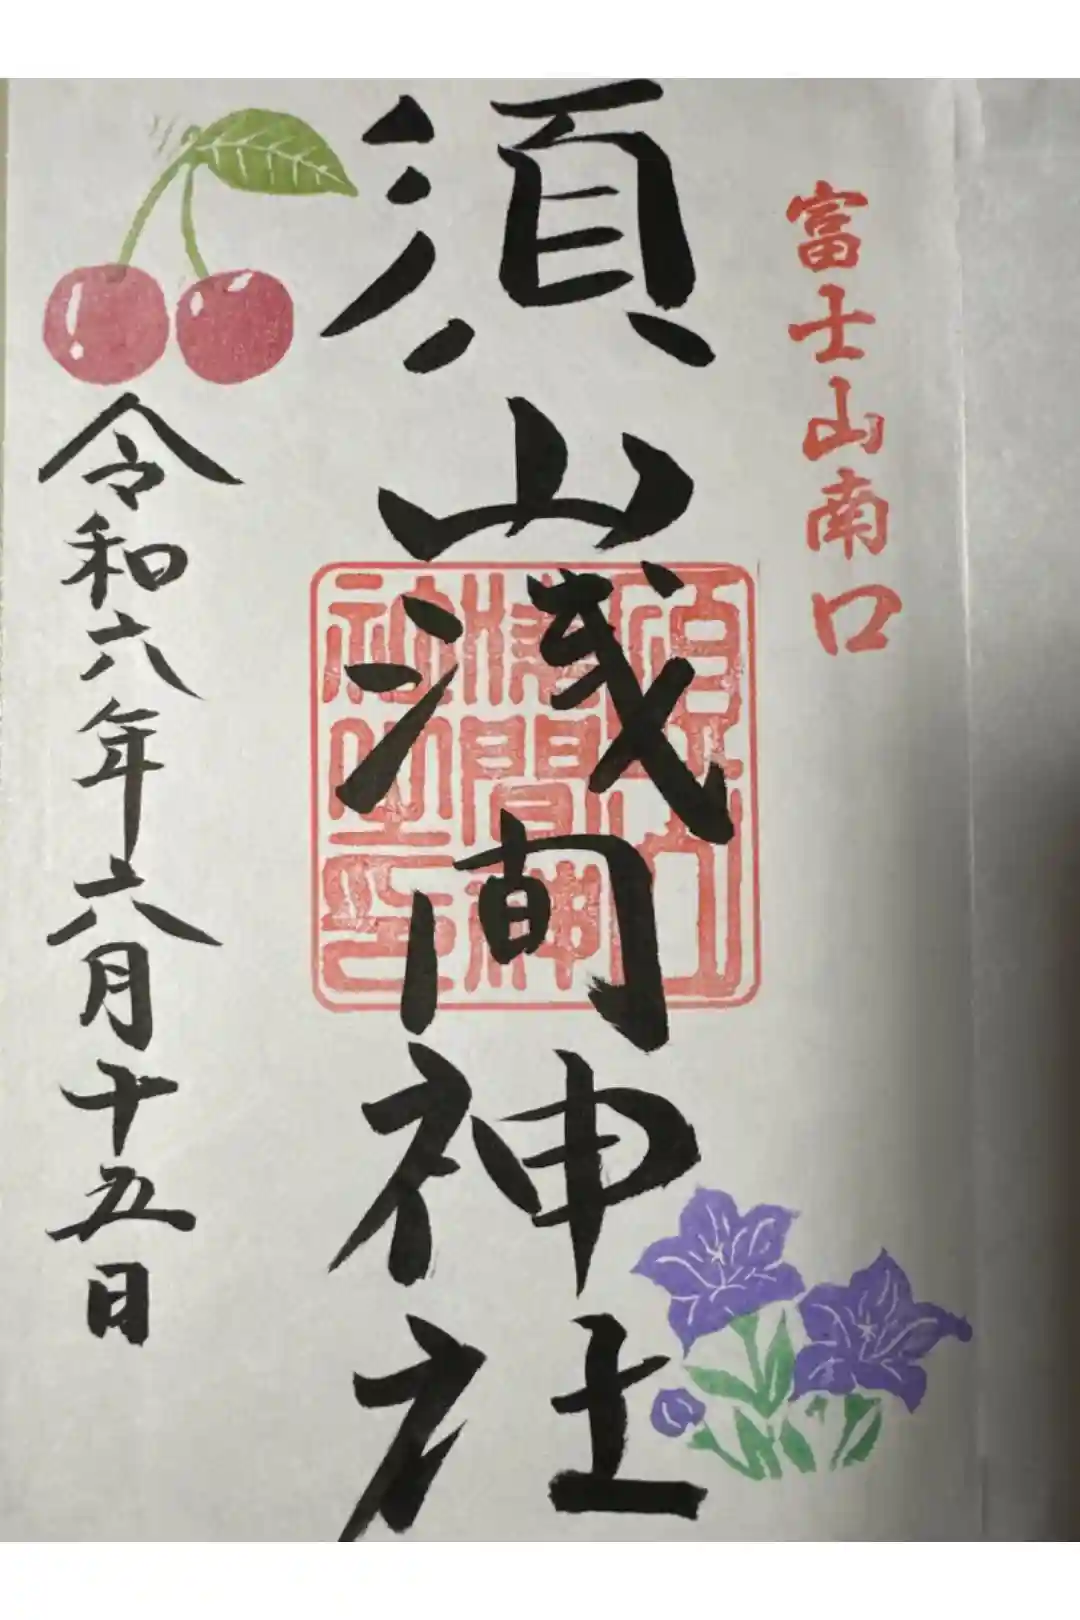 富士山南口
須山浅间神社
須山
淺間神
社之印
令和六年六月十五日